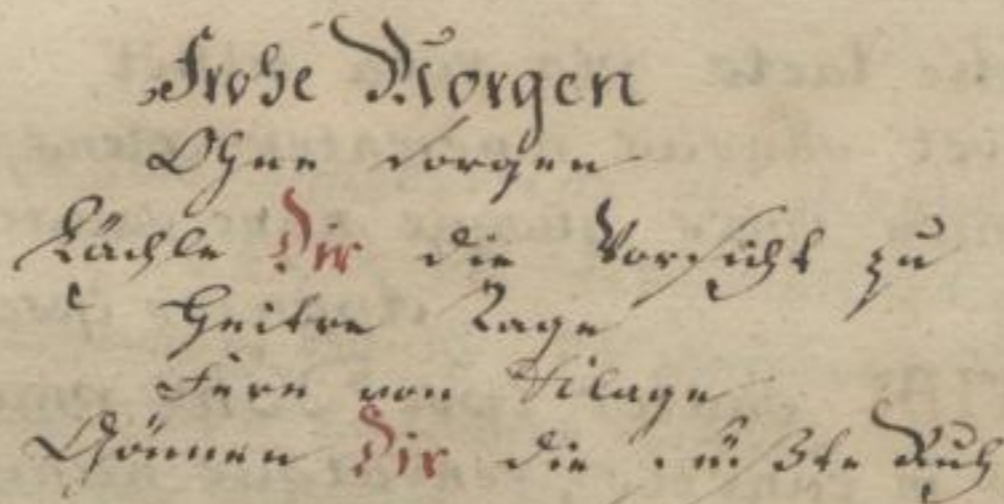 Frohe Morgen
Ohne Sorgen
Lächle Dir die Vorsicht zu
Heitre Tage
Fern von Klage
Gönnen Dir die süßte Ruh